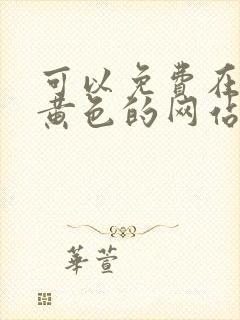 可以免费在
黄色的网站
華萱